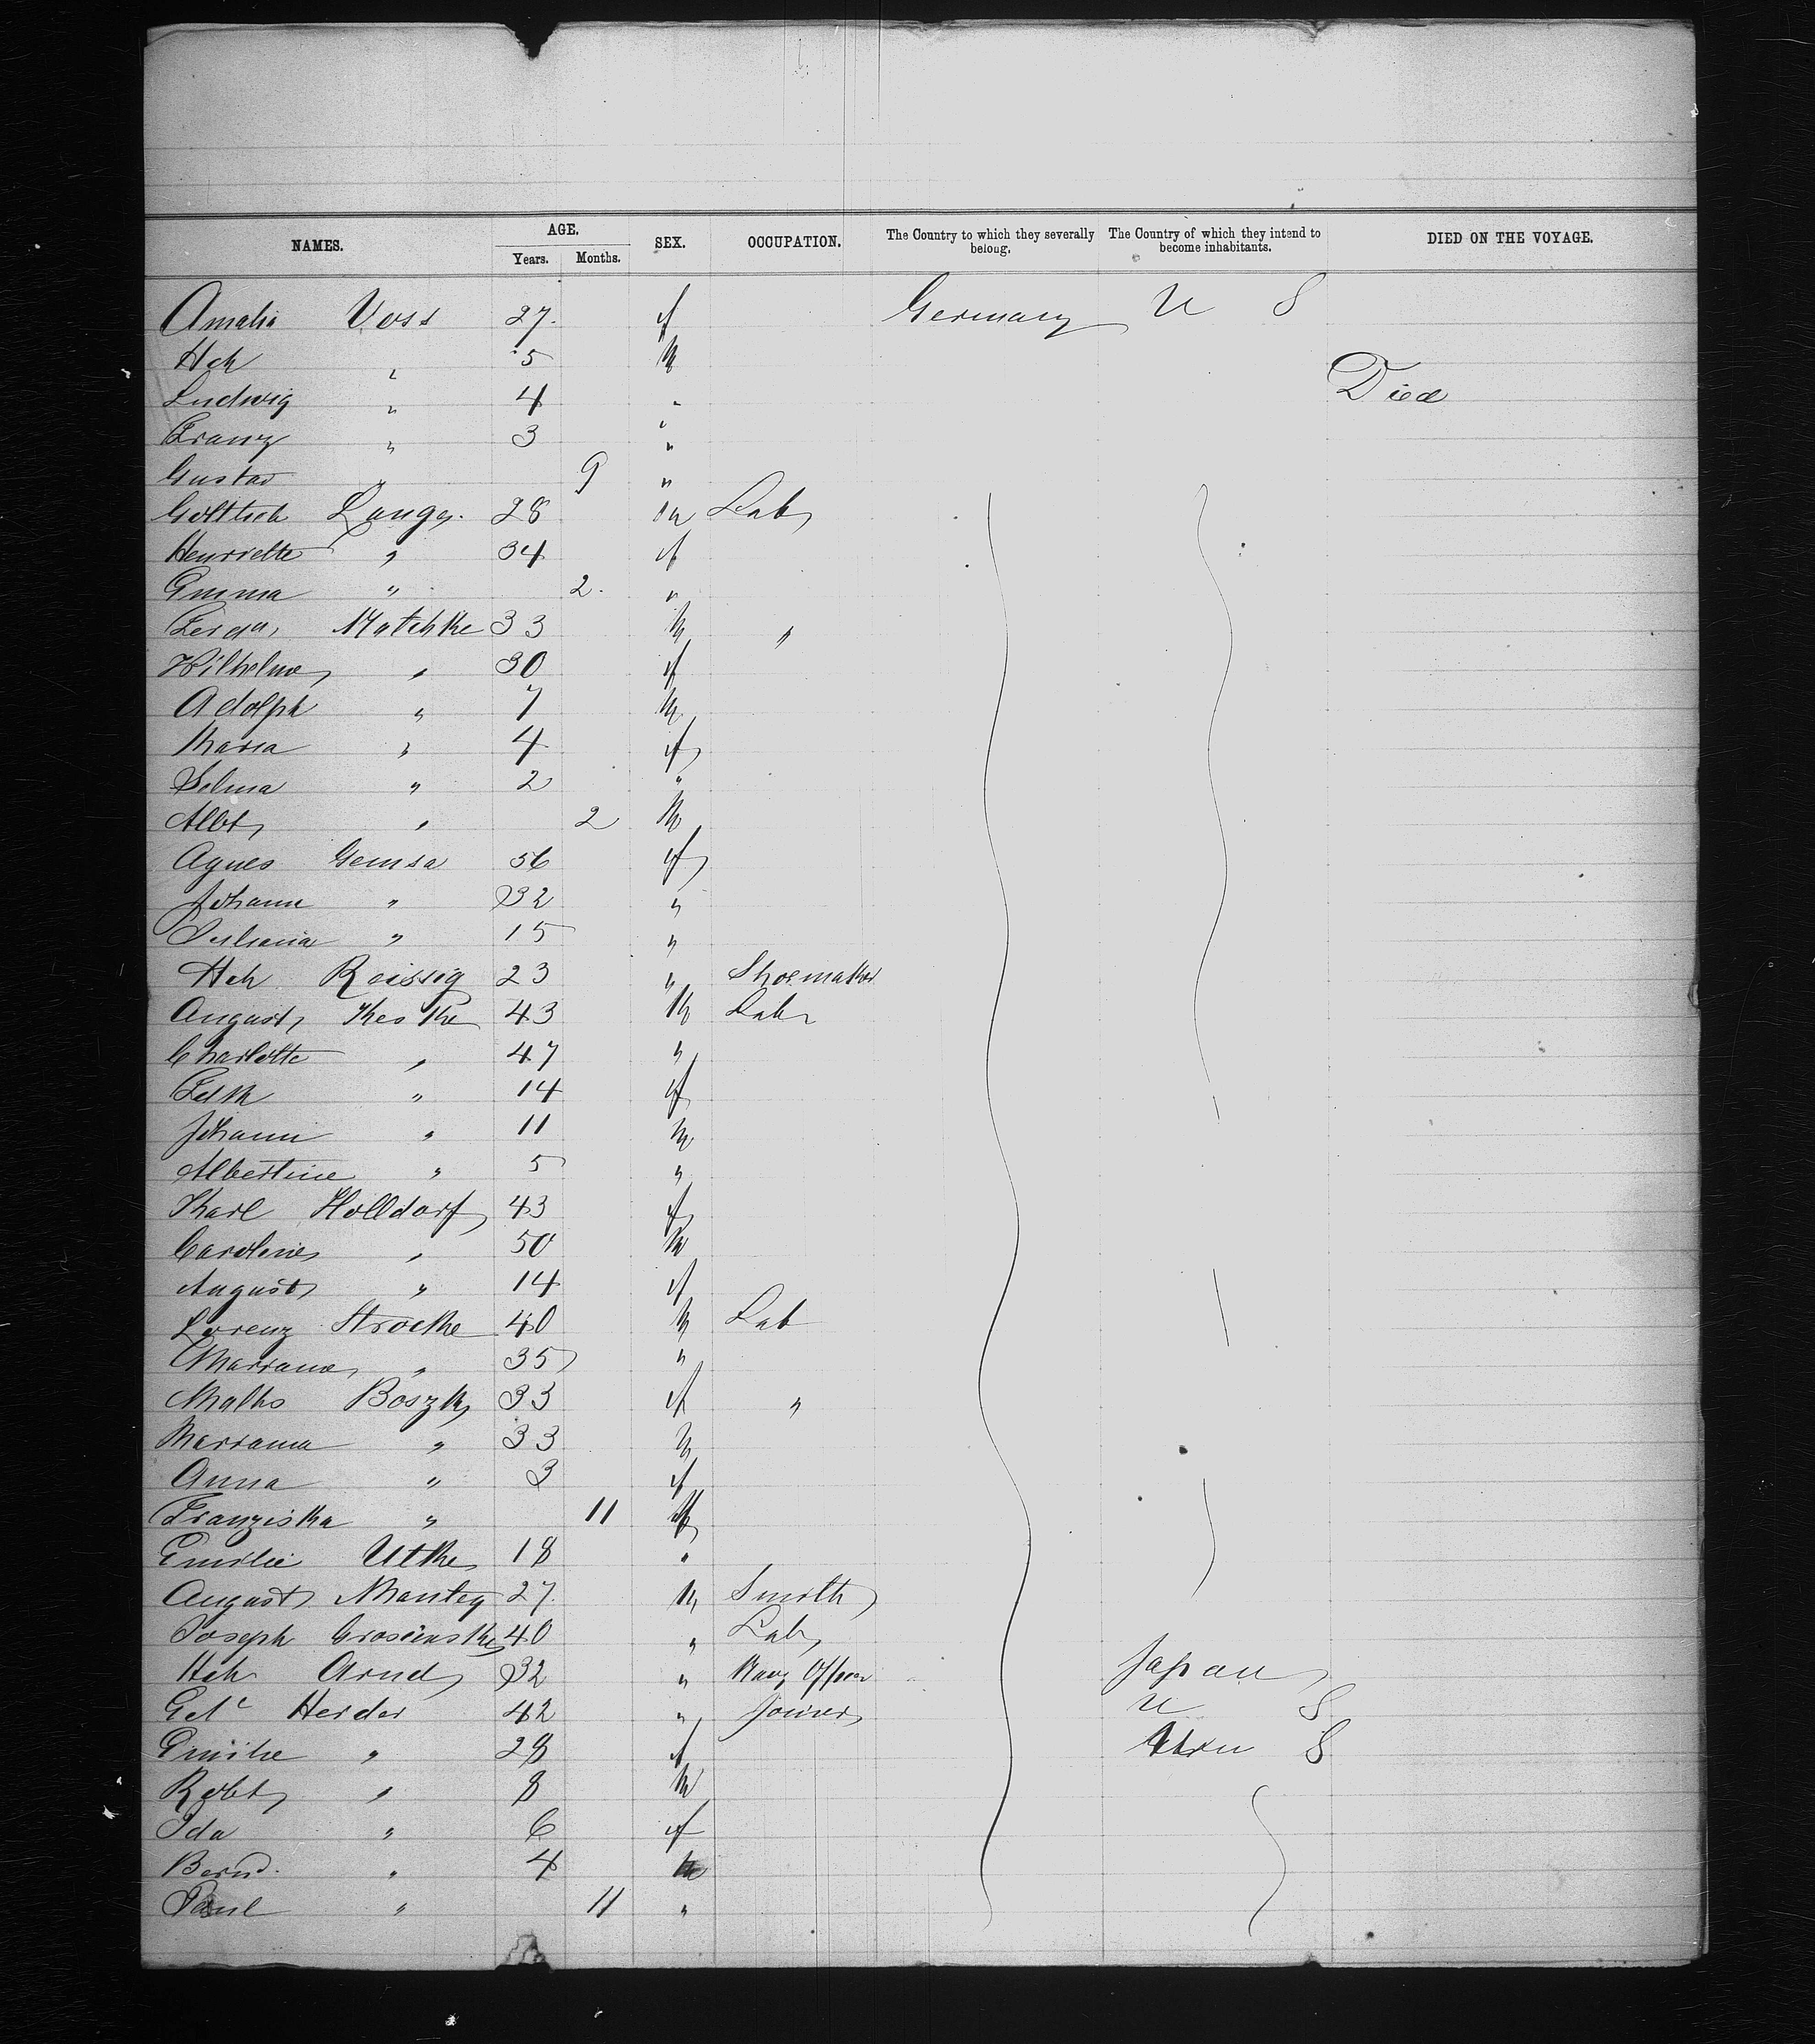 NAMES. AGE. SEX. OCCUPATION. The Country to which they severally belong. The Country of which they intend to become inhabitants. DIED ON THE VOYAGE.
Years. Months.
Amalia Voss 27. f Germany U S
Hch " 5 M
Ludwig " 4 " Died
Franz " 3 "
Gustav " 9 "
Gottlieb Lange. 28 m Lab
Henriette " 34 f
Emma " 2. "
Ferdn, Matchke 33 M "
Wilhelme " 30 f
Adolph " 7 M
Maria " 4 f
Selma " 2 "
Albt " 2 M
Agnes Gemsa 56 f
Johann " 32 "
Juliania " 15 "
Hch Reissig 23 " Shoemaker
August Keske 43 M Labr
Charlotte " 47 "
14 f
Johann " 11 M
Albertine " 5 "
Karl Holldorf 43 f
Caroline " 50 M
August " 14 f
Lorenz Strocke 40 M Lab
Mariane " 35 "
Boszk 33 f "
Marianna " 33 M
Anna " 3 f
Franziska " 11 f
Emilie Utke 18 "
August Mantey 27. M Smith
Joseph 40 " Lab
Hch Arnd 32 " Navy Officer Japan
Herder 42 " Joiner U S
Emilie " 28 f S
Robt " 8 M
Ida " 6 f
Bernd. " 4 M
Paul " 11 "